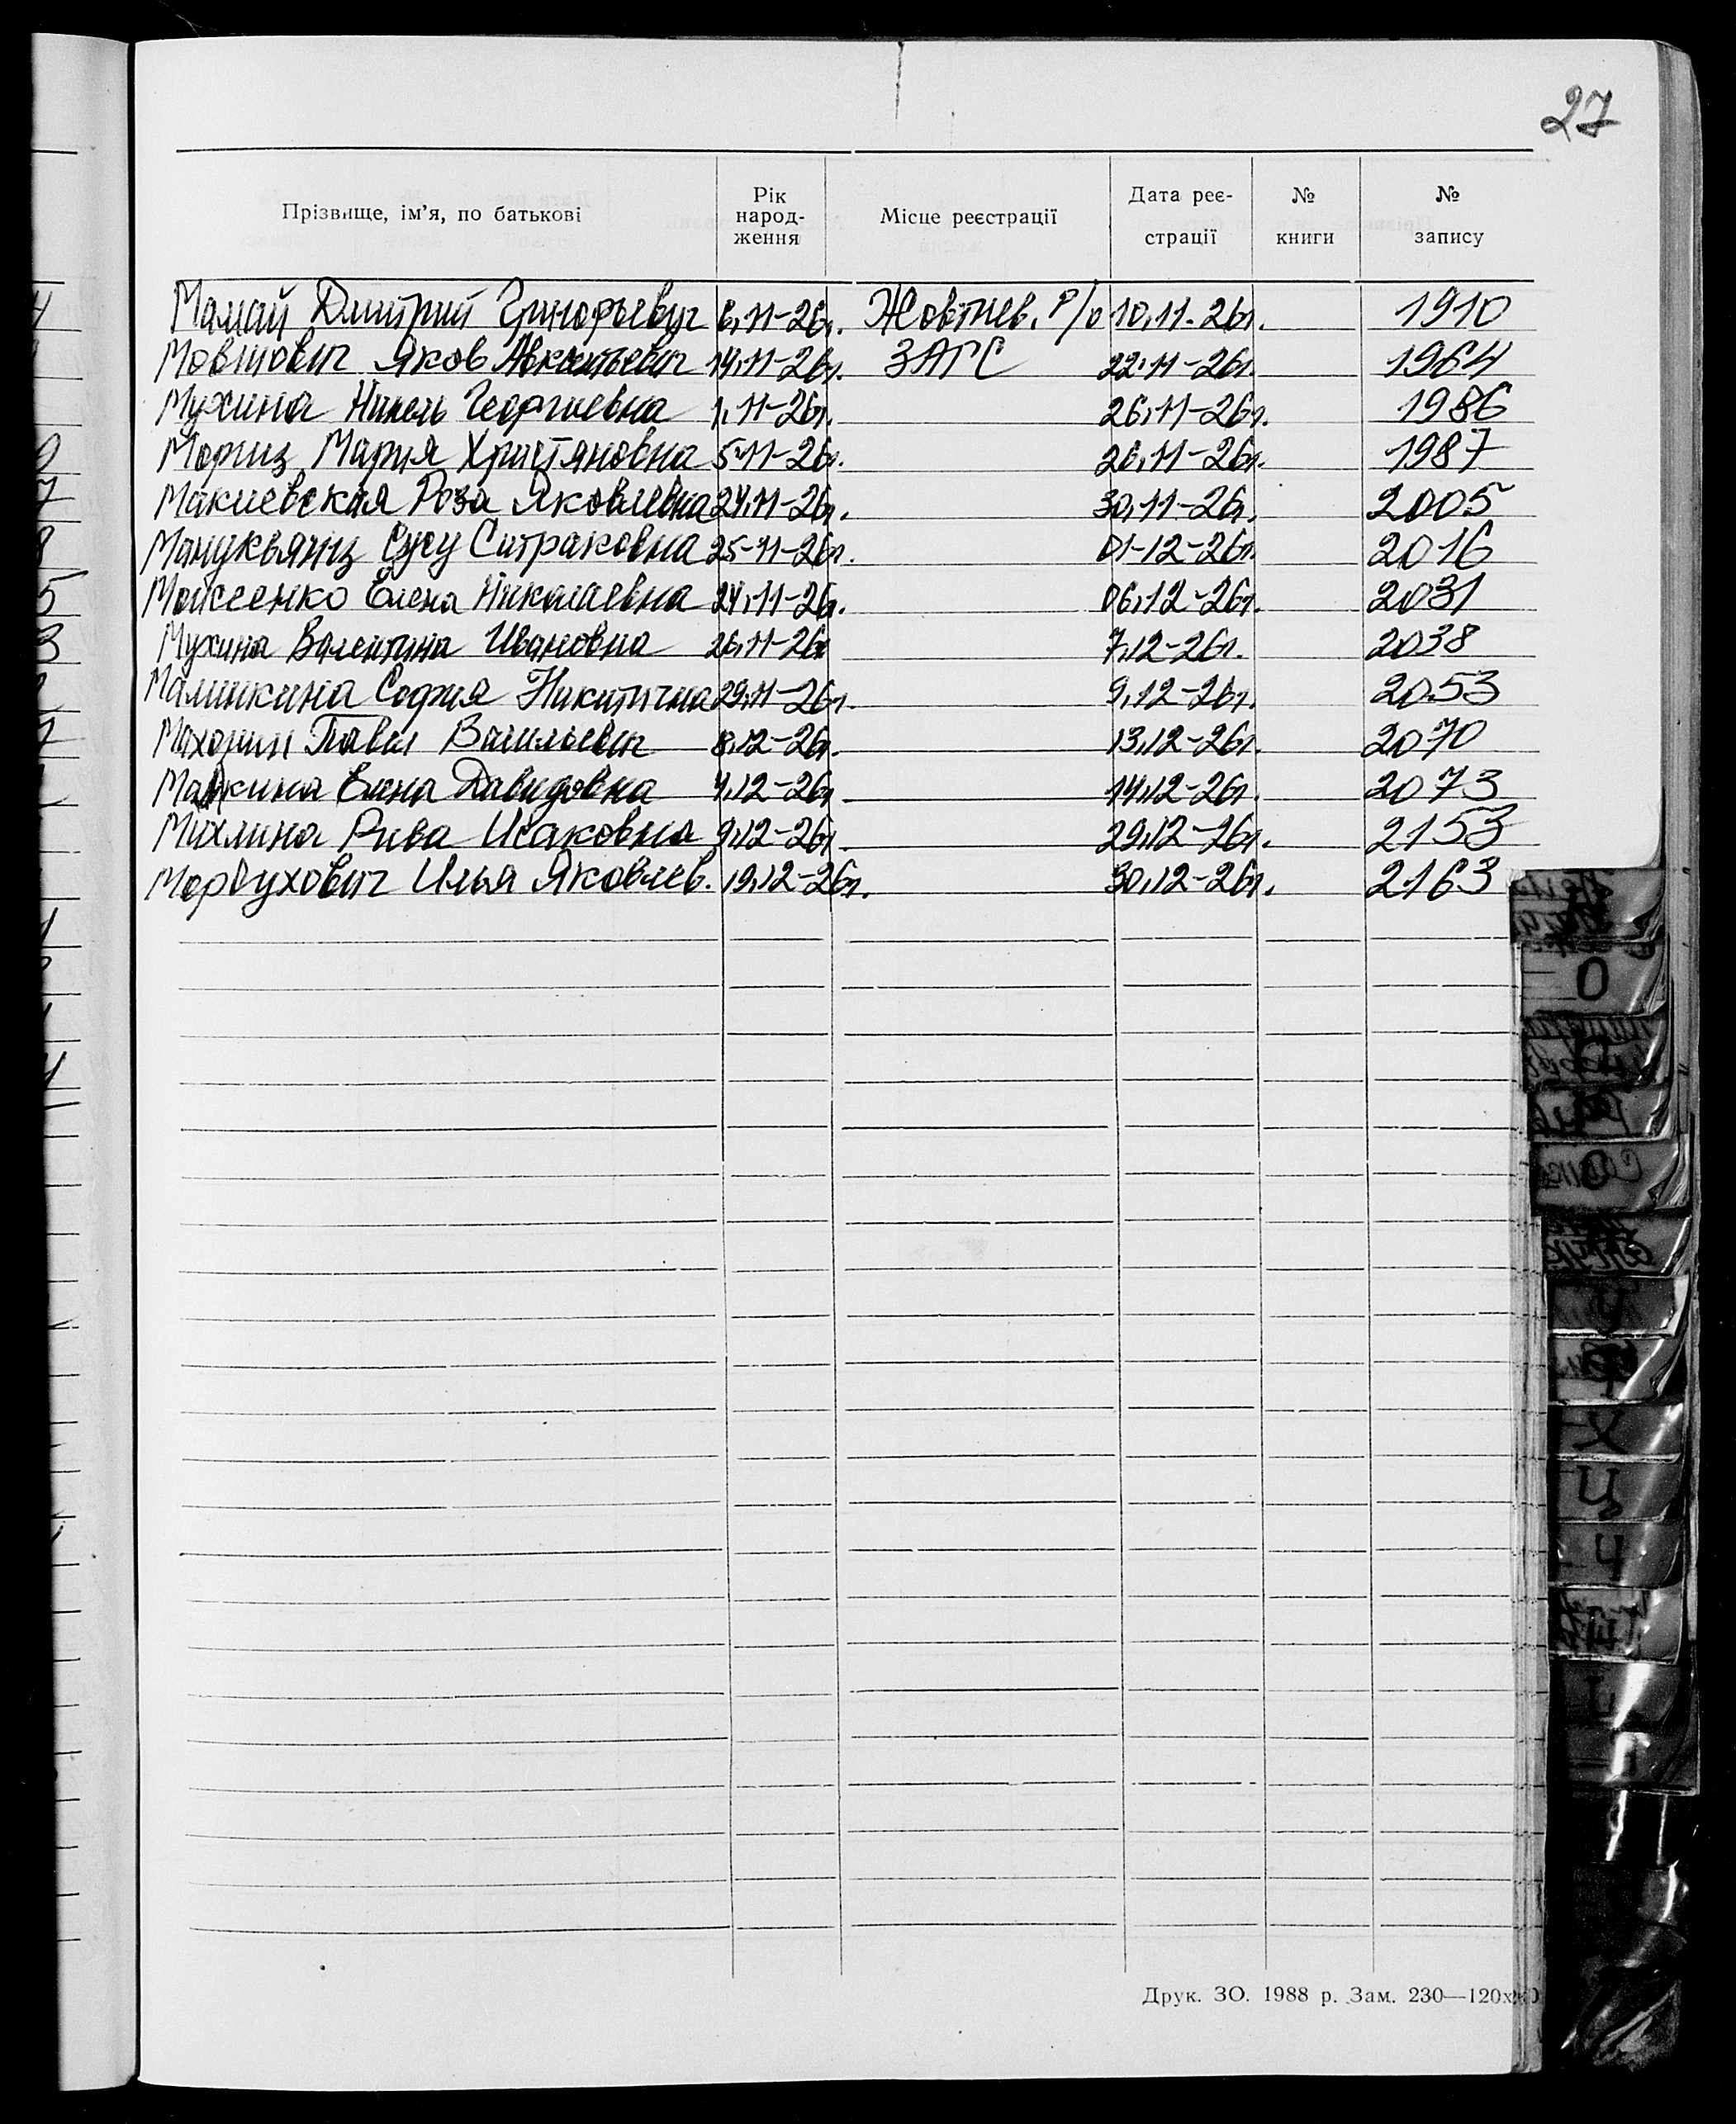 27
Прізвище, ім'я, по батькові | Рік народ-ження | Місце реєстрації | Дата реє-страції | № книги | № запису
Мамай Дмитрий Григорьевич 6,11-26г. Жовтнев. р/о 10,11-26г. 1910
Мовшович Яков 14,11-26г. ЗАГС 22,11-26г. 1964
Мухина Нинель Георгиевна 1,11-26г. 26,11-26г. 1986
Мориз Мария Христяновна 5,11-26г. 26,11-26г. 1987
Макиевская Роза Яковлевна 24,11-26г. 30,11-26г. 2005
Манукьянц Сусу Ситраковна 25-11-26г. 01-12-26г. 2016
Мойсеенко Елена Николаевна 24,11-26г. 06,12-26г. 2031
Мухина Валентина Ивановна 26,11-26г 7,12-26г. 2038
Малинкина София Никитична 29,11-26г. 9,12-26г. 2053
Махорин Павел Васильевич 8,12-26г. 13,12-26г. 2070
Давидовна 4,12-26г 14,12-26г. 2073
Михлина Рива Исаковна 9,12-26г. 29,12-26г. 2153
Мордухович Илья Яковлев. 19,12-26г. 30,12-26г. 2163
О
С
У
Ф
Х
Ц
Ч
Ш
Друк. ЗО. 1988 р. Зам. 230—120х